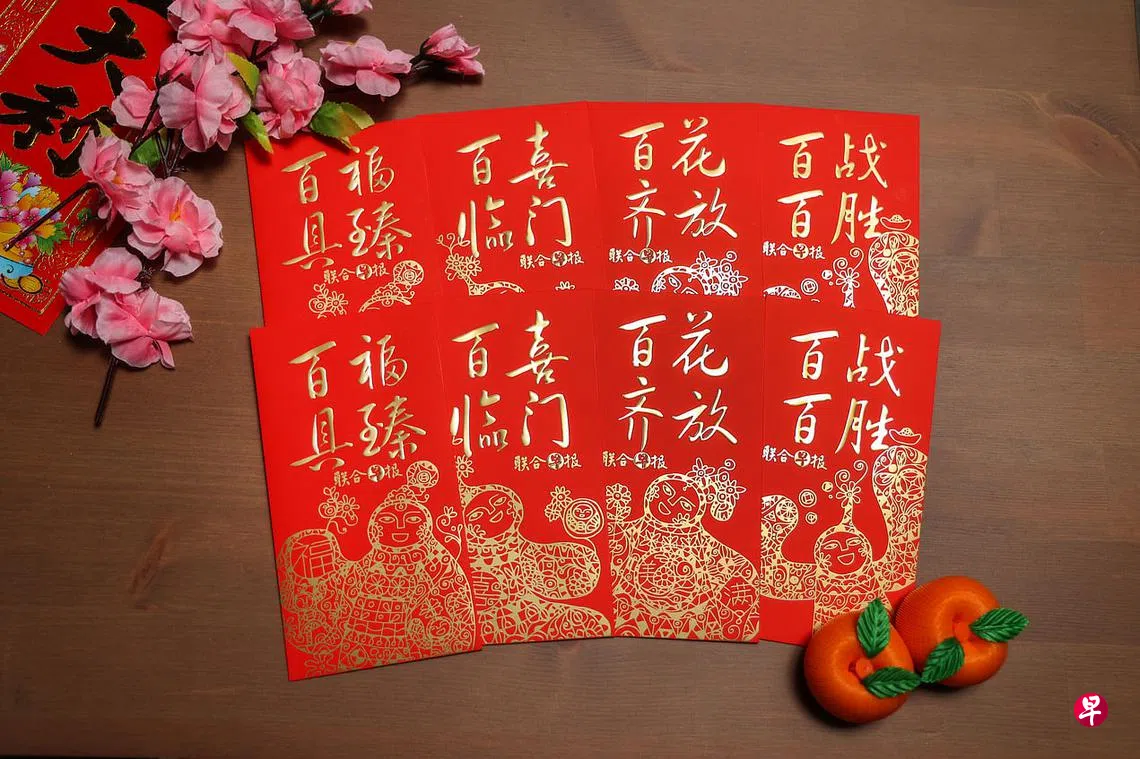 大利
百福
具臻
联合早报
百喜
临门
联合早报
百花
齐放
联合早报
百战
百胜
联合早报
百福
具臻
联合早报
福
百喜
临门
联合早报
百花
齐放
联合早报
百战
百胜
联合早报
早